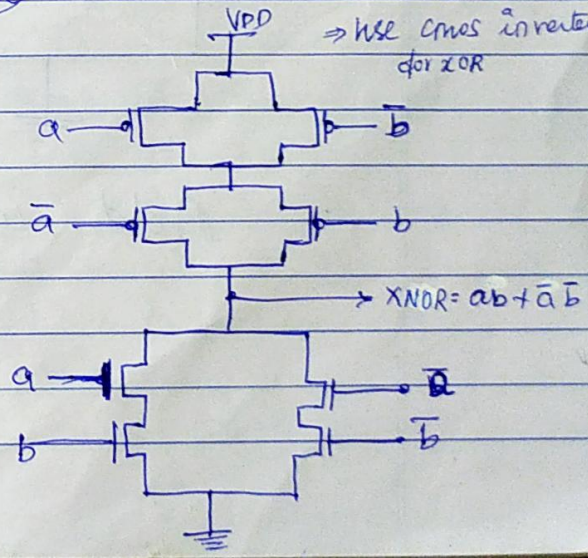 VDD
⇒ Use cmos inverte
for XOR
a
b̅
a̅
b
XNOR = ab + a̅ b̅
a
a̅
b
b̅